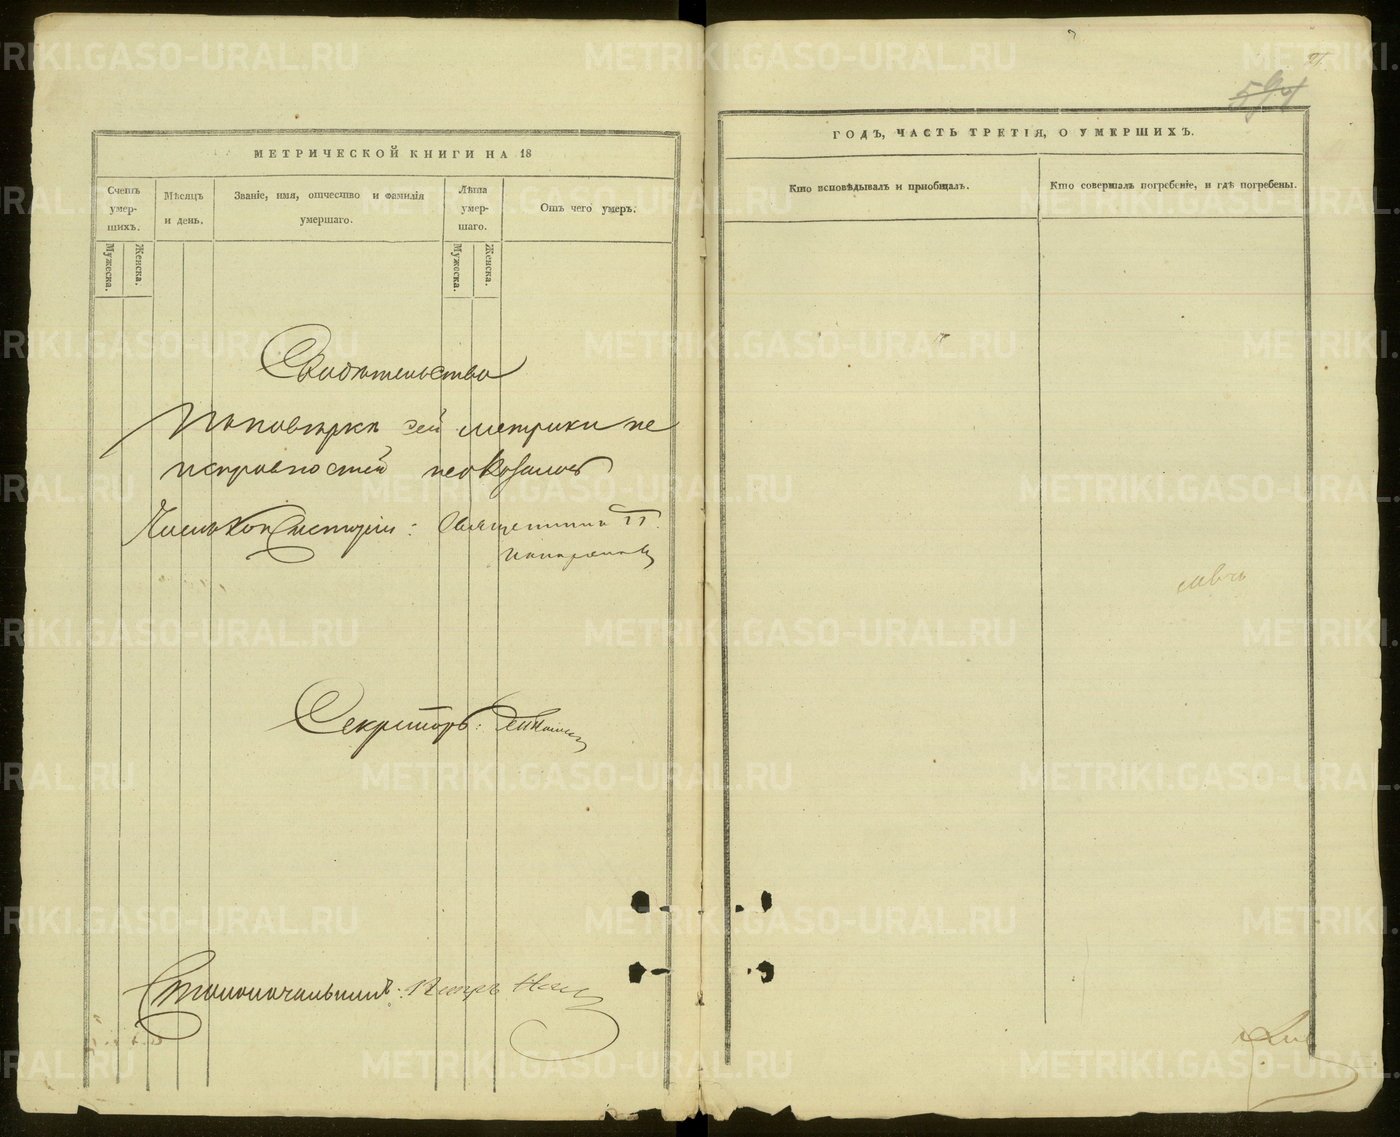 МЕТРИЧЕСКОЙ КНИГИ НА 18
Счетъ умер-шихъ.
Мѣсяцъ и день.
Званіе, имя, отчество и фамилія умершаго.
Лѣта умер-шаго.
Отъ чего умеръ.
Мужеска.
Женска.
Мужеска.
Женска.
Свидѣтельство
По повѣрке сей метрики не
исправностей неоказалось
Членъ Консисторіи: Священникъ
Секретарь:
Столоначальникъ: Петръ
594
ГОДЪ, ЧАСТЬ ТРЕТІЯ, О УМЕРШИХЪ.
Кто исповѣдывалъ и приобщалъ.
Кто совершалъ погребеніе, и гдѣ погребены.
METRIKI.GASO-URAL.RU